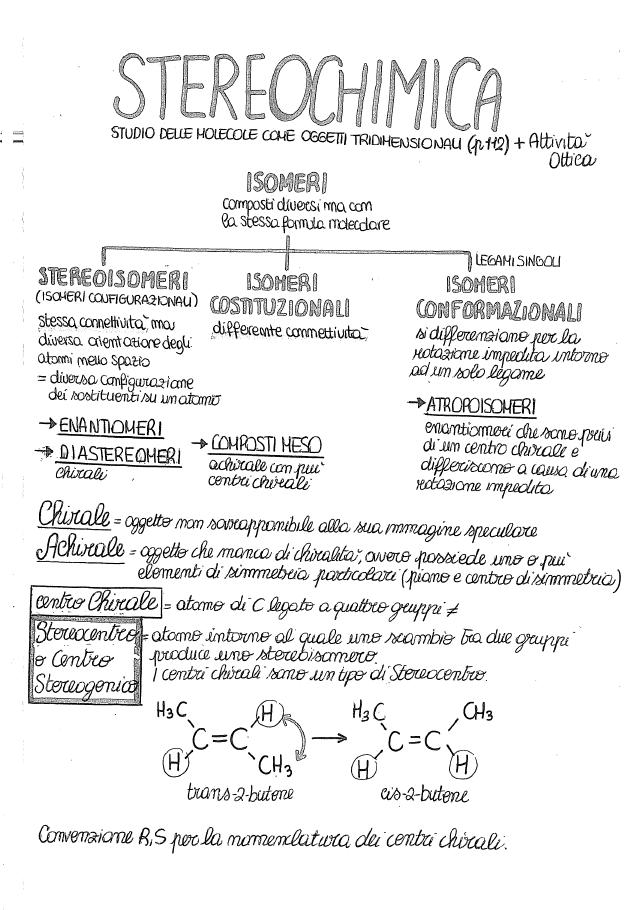 STEREOCHIMICA
STUDIO DELLE MOLECOLE COME OGGETTI TRIDIMENSIONALI (p.112) + Attività
Ottica
ISOMERI
composti diversi ma con
la stessa formula molecolare
LEGAMI SINGOLI
STEREOISOMERI
(ISOMERI CONFIGURAZIONALI)
stessa connettività, ma
diversa orientazione degli
atomi nello spazio
= diversa configurazione
dei sostituenti su un atomo
→ ENANTIOMERI
→ DIASTEREOMERI
chirali
ISOMERI
COSTITUZIONALI
differente connettività
→ COMPOSTI MESO
achirale con più
centri chirali
ISOMERI
CONFORMAZIONALI
si differenziano per la
rotazione impedita intorno
ad un solo legame
→ ATROPOISOMERI
enantiomeri che sono privi
di un centro chirale e
differiscono a causa di una
rotazione impedita
Chirale = oggetto non sovrapponibile alla sua immagine speculare
Achirale = oggetto che manca di chiralità, ovvero possiede uno o più
elementi di simmetria particolari (piano e centro di simmetria)
centro Chirale = atomo di C legato a quattro gruppi ≠
Stereocentro = atomo intorno al quale uno scambio tra due gruppi
o Centro produce uno stereoisomero.
Stereogenico I centri chirali sono un tipo di Stereocentro.
H₃C H H₃C CH₃
C=C → C=C
H CH₃ H H
trans-2-butene cis-2-butene
Convenzione R,S per la nomenclatura dei centri chirali.